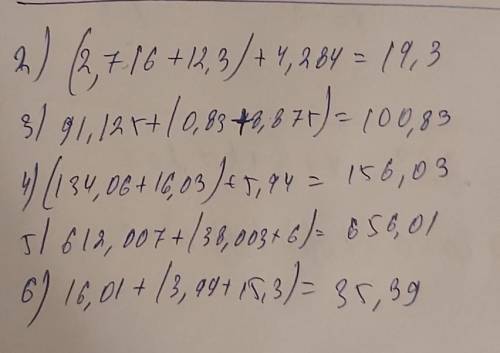 2) (2,716+12,3)+4,284=19,3
3) 91,125+(0,83+8,875)=100,83
4) (134,06+16,03)+5,94=156,03
5) 612,007+(38,003+6)=656,01
6) 16,01+(3,44+15,3)=35,39